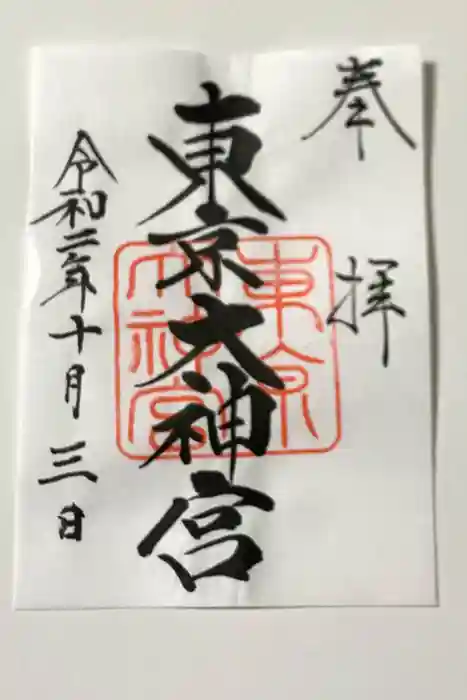 奉拝
東京大神宮
東京
大神宮
令和二年十月三日